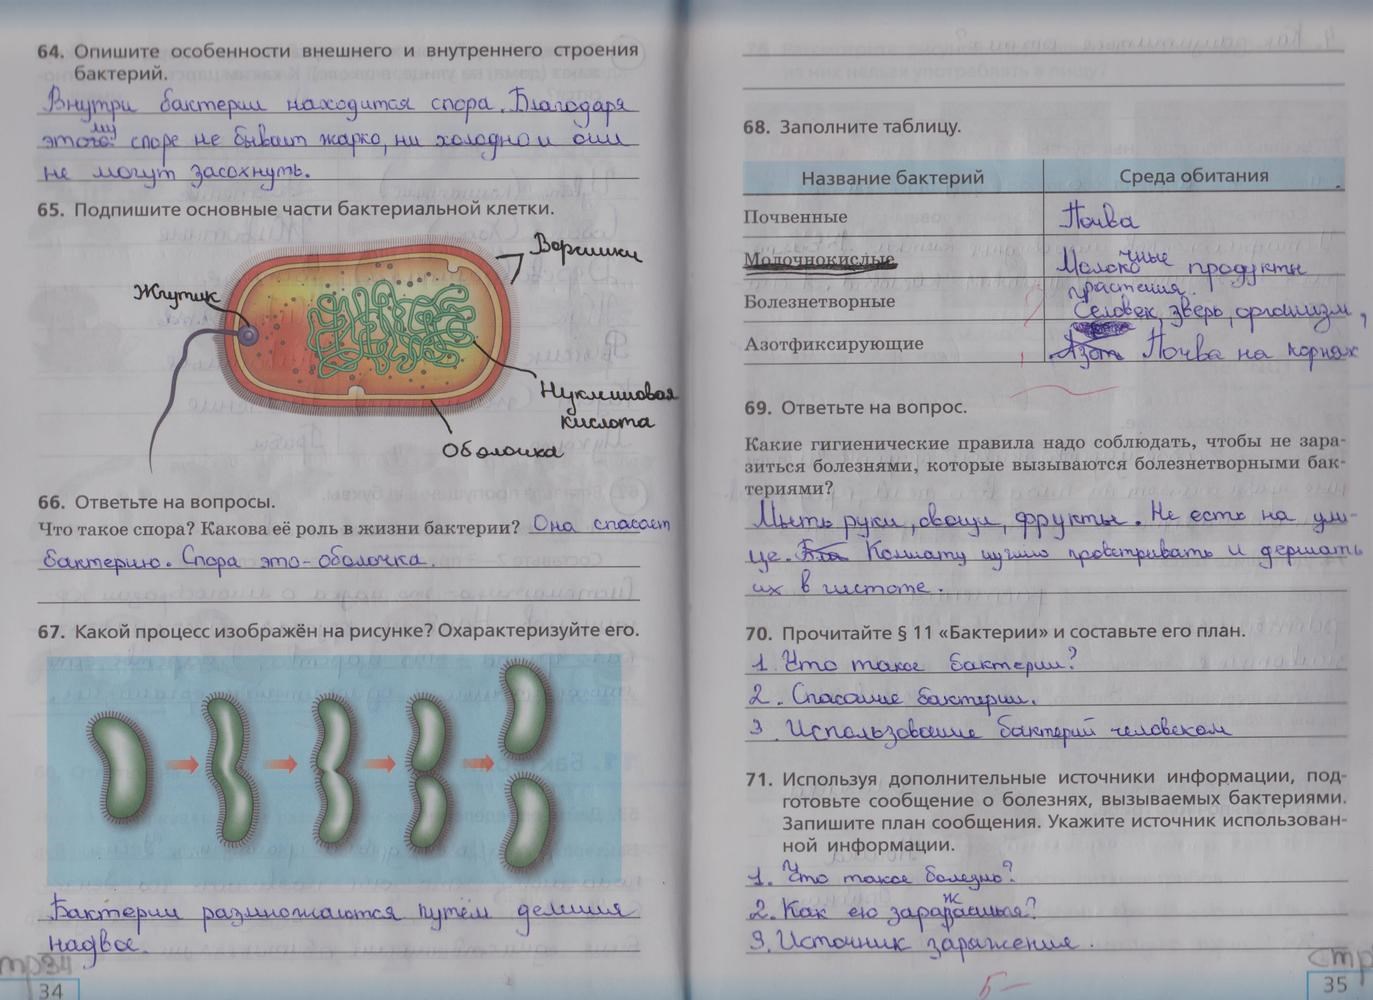 64. Опишите особенности внешнего и внутреннего строения
бактерий.
Внутри бактерии находится спора. Благодаря
этого му споре не бывает жарко, ни холодно и они
не могут засохнуть.
65. Подпишите основные части бактериальной клетки.
Ворсинки
Жгутик
Нуклеиновая
кислота
Оболочка
66. Ответьте на вопросы.
Что такое спора? Какова её роль в жизни бактерии? Она спасает
бактерию. Спора это-оболочка.
67. Какой процесс изображён на рисунке? Охарактеризуйте его.
Бактерии размножаются путём деления
надвое.
стр34
34
68. Заполните таблицу.
Название бактерий
Среда обитания
Почвенные
Почва
Молочнокислые
Молокочные продукты
растения.
Болезнетворные
Человек, зверь, организм,
Азотфиксирующие
Азот Почва на корнях
69. Ответьте на вопрос.
Какие гигиенические правила надо соблюдать, чтобы не зара-
зиться болезнями, которые вызываются болезнетворными бак-
териями?
Мыть руки, овощи, фрукты. Не есть на ули-
це. Комнату нужно проветривать и держать
их в чистоте.
70. Прочитайте § 11 «Бактерии» и составьте его план.
1. Что такое бактерии?
2. Спасание бактерии.
3. Использование бактерий человеком
71. Используя дополнительные источники информации, под-
готовьте сообщение о болезнях, вызываемых бактериями.
Запишите план сообщения. Укажите источник использован-
ной информации.
1. Что такое болезнь?
2. Как ею заражаешься?
3. Источник заражения.
5-
стр
35